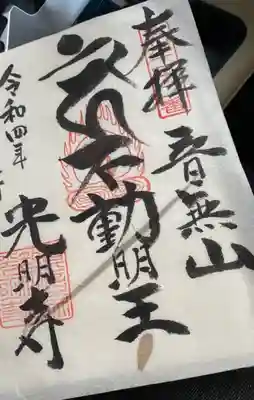 奉拝
音無山
不動明王
光明寺
令和四年